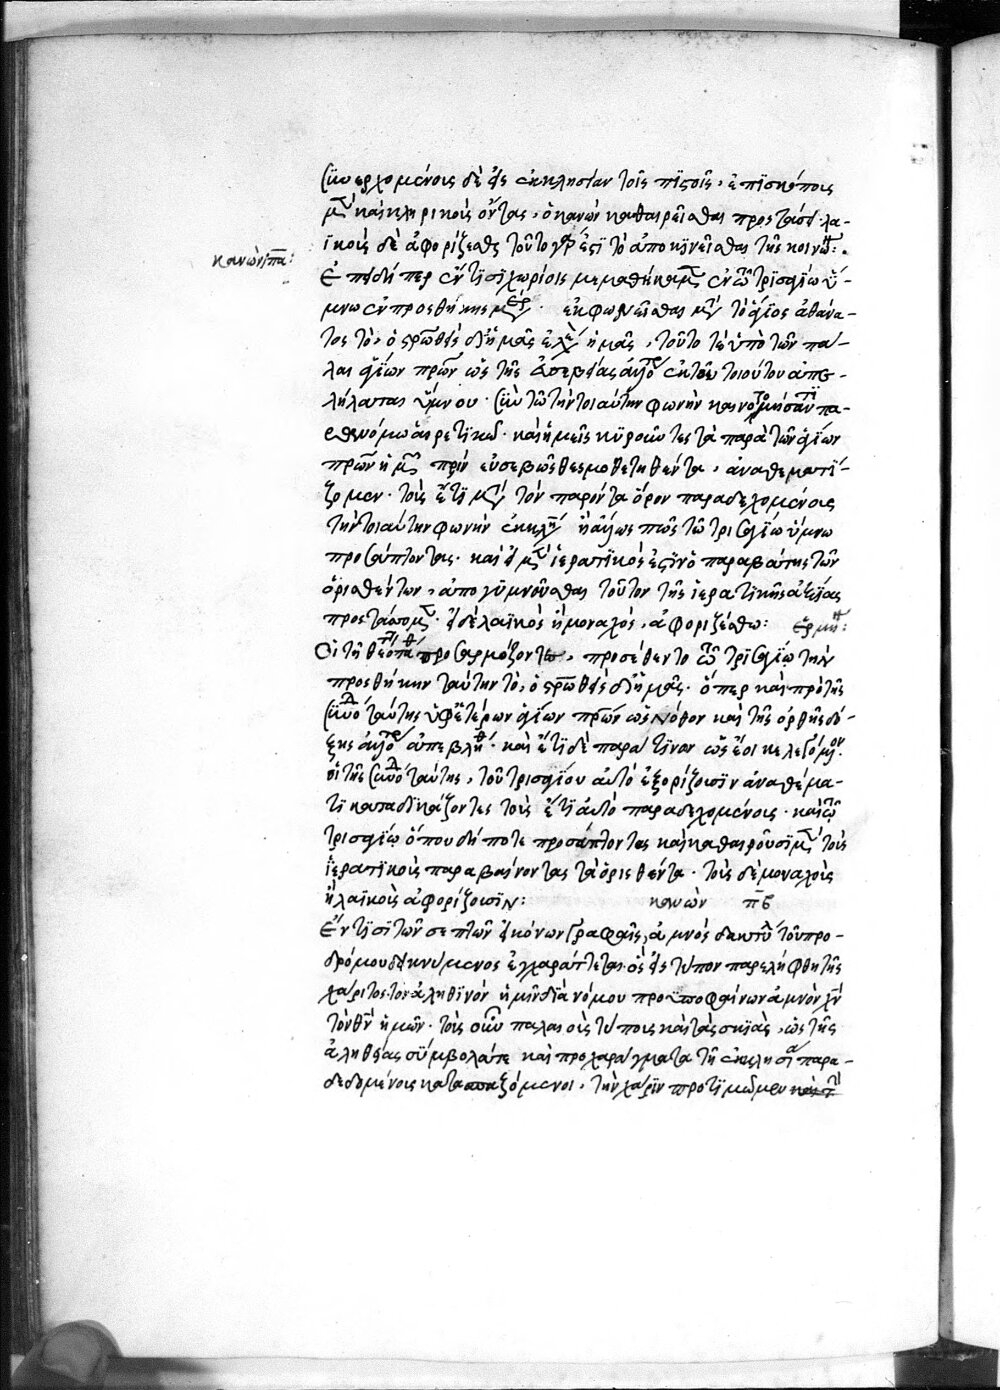 συνερχομένοις δὲ εἰς ἐκκλησίαν τοῖς πιστοῖς, ἐπισκόπους
μὲν καὶ κληρικοὺς ὄντας, ὁ κανὼν καθαιρεῖσθαι προστάσσει· λα-
ϊκοὺς δὲ ἀφορίζεσθαι τοῦτο γάρ ἐστι τὸ ἀποκινεῖσθαι τῆς κοινων:.
κανὼν πα:
Ἐπειδήπερ ἔν τισι χωρίοις μεμαθήκαμεν ἐν τῷ τρισαγίῳ ὕ-
μνῳ ἐν προσθήκης μέρει· ἐκφωνεῖσθαι μετὰ τὸ ἅγιος ἀθάνα-
τος τὸ, ὁ σταυρωθεὶς δι' ἡμᾶς ἐλέησον ἡμᾶς, τοῦτο τε ὑπὸ τῶν πά-
λαι ἁγίων πατέρων ὡς τῆς εὐσεβείας ἀλλότριον ἐκ τοῦ τοιούτου ἀπε-
λήλαται ὕμνου· σὺν τῷ τὴν τοιαύτην φωνὴν καινοτομήσαντι πα-
ρανόμῳ αἱρετικῷ· καὶ ἡμεῖς κυροῦντες τὰ παρὰ τῶν ἁγίων
πατέρων ἡμῶν πρὶν εὐσεβῶς θεσμοθετηθέντα, ἀναθεματί-
ζομεν· τοὺς ἔτι μετὰ τὸν παρόντα ὅρον παραδεχομένους
τὴν τοιαύτην φωνὴν ἐπ' ἐκκλησίας ἢ ἄλλως πως τῷ τρισαγίῳ ὕμνῳ
προσάπτοντας· καὶ εἰ μὲν ἱερατικός ἐστιν ὁ παραβάτης τῶν
ὁρισθέντων, ἀπογυμνοῦσθαι τοῦτον τῆς ἱερατικῆς ἀξίας
προστάσσομεν· εἰ δὲ λαϊκὸς ἢ μοναχός, ἀφοριζέσθω: ἑρμη:
Οἱ τῇ θεότητι πάθος προσαρμόζοντες, προσέθεντο τῷ τρισαγίῳ τὴν
προσθήκην ταύτην τὸ, ὁ σταυρωθεὶς δι' ἡμᾶς· ὅπερ καὶ πρὸ τῆς
συνόδου ταύτης ὑφ' ἑτέρων ἁγίων πατέρων ὡς νόθον καὶ τῆς ὀρθῆς δό-
ξης ἀλλότριον ἀπεβλήθη· καὶ ἔτι δὲ παρά τινων
οἱ τῆς συνόδου ταύτης, τοῦ τρισαγίου αὐτὸ ἐξορίζουσιν ἀναθέμα-
τι καταδικάζοντες τοὺς ἔτι αὐτὸ παραδεχομένους· καὶ τῷ
τρισαγίῳ ὁπουδήποτε προσάπτοντας καὶ καθαιροῦσι μὲν τοὺς
ἱερατικοὺς παραβαίνοντας τὰ ὁρισθέντα· τοὺς δὲ μοναχοὺς
ἢ λαϊκοὺς ἀφορίζουσιν: κανὼν πβ
Ἔν τισι τῶν σεπτῶν εἰκόνων γραφαῖς, ἀμνὸς δακτύλῳ τοῦ προ-
δρόμου δεικνύμενος ἐγχαράττεται· ὃς εἰς τύπον παρελήφθη τῆς
χάριτος· τὸν ἀληθινὸν ἡμῖν διὰ νόμου προϋποφαίνων ἀμνὸν χν
τὸν θν ἡμῶν· τοὺς οὖν παλαιοὺς τύπους καὶ τὰς σκιὰς, ὡς τῆς
ἀληθείας σύμβολά τε καὶ προχαράγματα τῇ ἐκκλησίᾳ παρα-
δεδομένους κατασπαζόμενοι, τὴν χάριν προτιμῶμεν